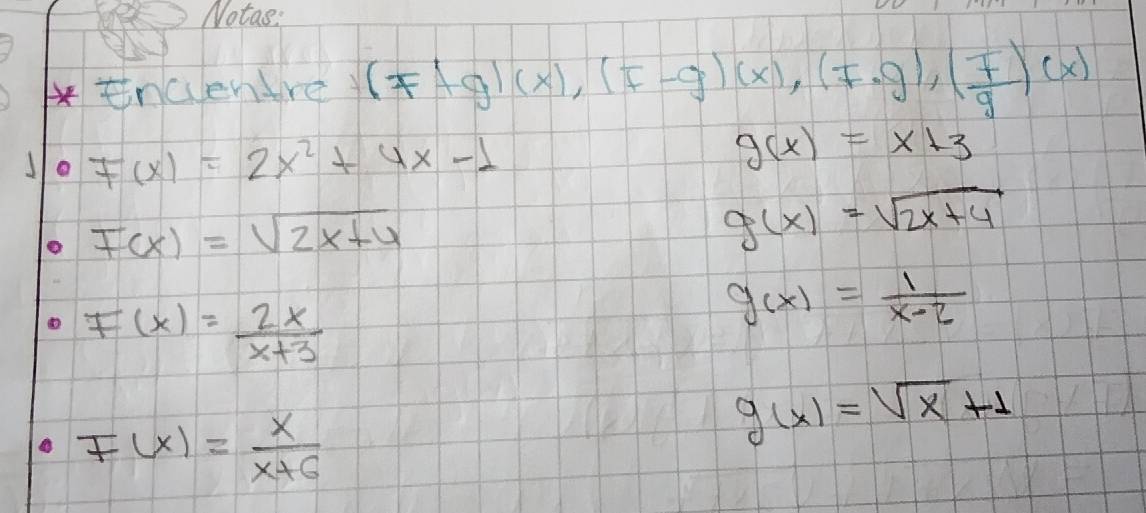 Notas:
* Encuentre (F+g)(x), (F-g)(x), (F.g), (F/g)(x)
1 • F(x) = 2x² + 4x -1 g(x) = x+3
• F(x) = √(2x+4) g(x) = √(2x+4)
• F(x) = 2x/(x+3) g(x) = 1/(x-2)
• F(x) = x/(x+6) g(x) = √x +1